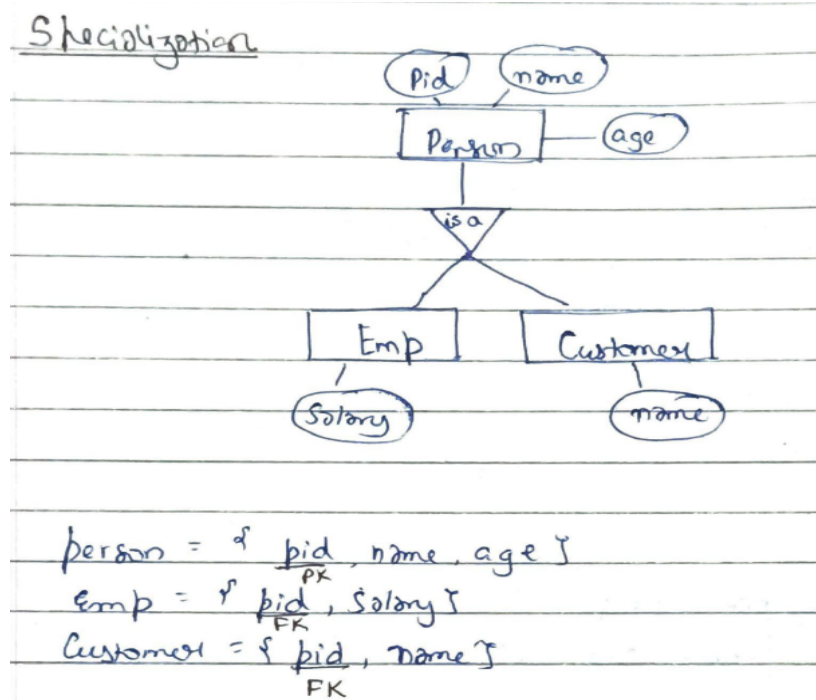 Specialization
Pid name
Person age
is a
Emp Customer
Salary name
person = { pid, name, age }
PK
Emp = { pid, salary }
FK
Customer = { pid, name }
FK